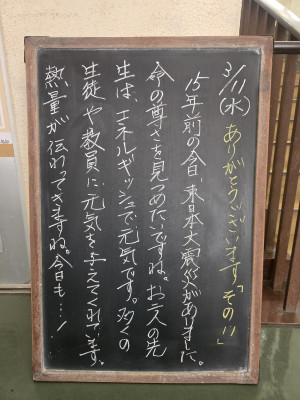 3/11(水)ありがとうございます「その11」
15年前の今日、東日本大震災がありました。
命の尊さを見つめたいですね。お二人の先
生は、エネルギッシュで元気です。多くの
生徒や教員に元気を与えてくれています。
熱量が伝わってきますね。今日も…!